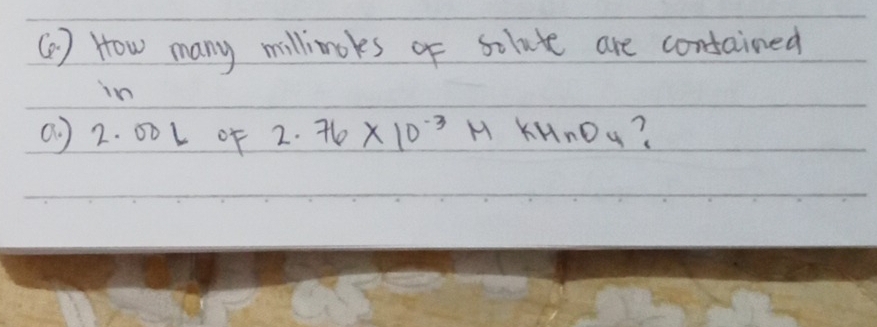 6.) How many millimoles of solute are contained
in
a.) 2.00 L of 2.76 X 10⁻³ M KMnO₄?